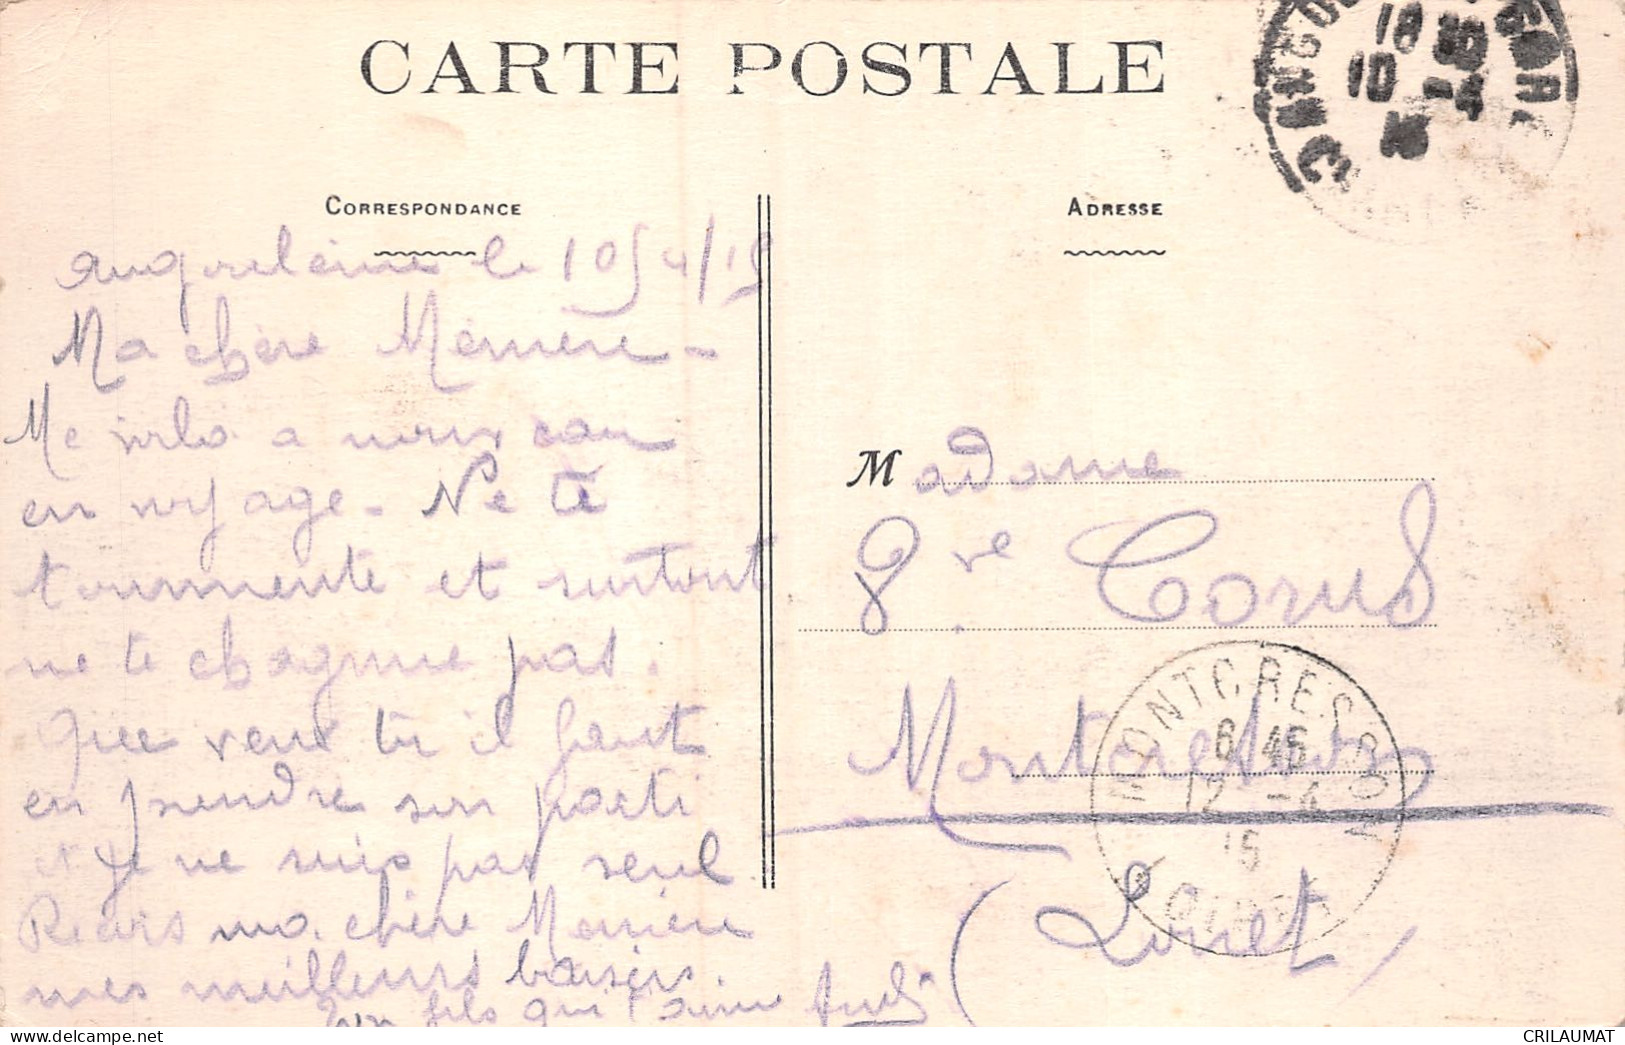 CARTE POSTALE
CORRESPONDANCE
Angouleme le 10/4/15
Ma chère Mémère -
Me voila a nouveau
en voyage. Ne te
tourmente et surtout
ne te chagrine pas.
Que veux tu il faut
en prendre son parti
et je ne suis pas seul
Recois ma chère Mémère
mes meilleurs baisers.
Ton fils qui t'aime
ADRESSE
Madame
Vve Corus
Montcresson
(Loiret)
GARE
18
10
MONTCRESSON
6 45
12 -4
15
LOIRET
CRILAUMAT